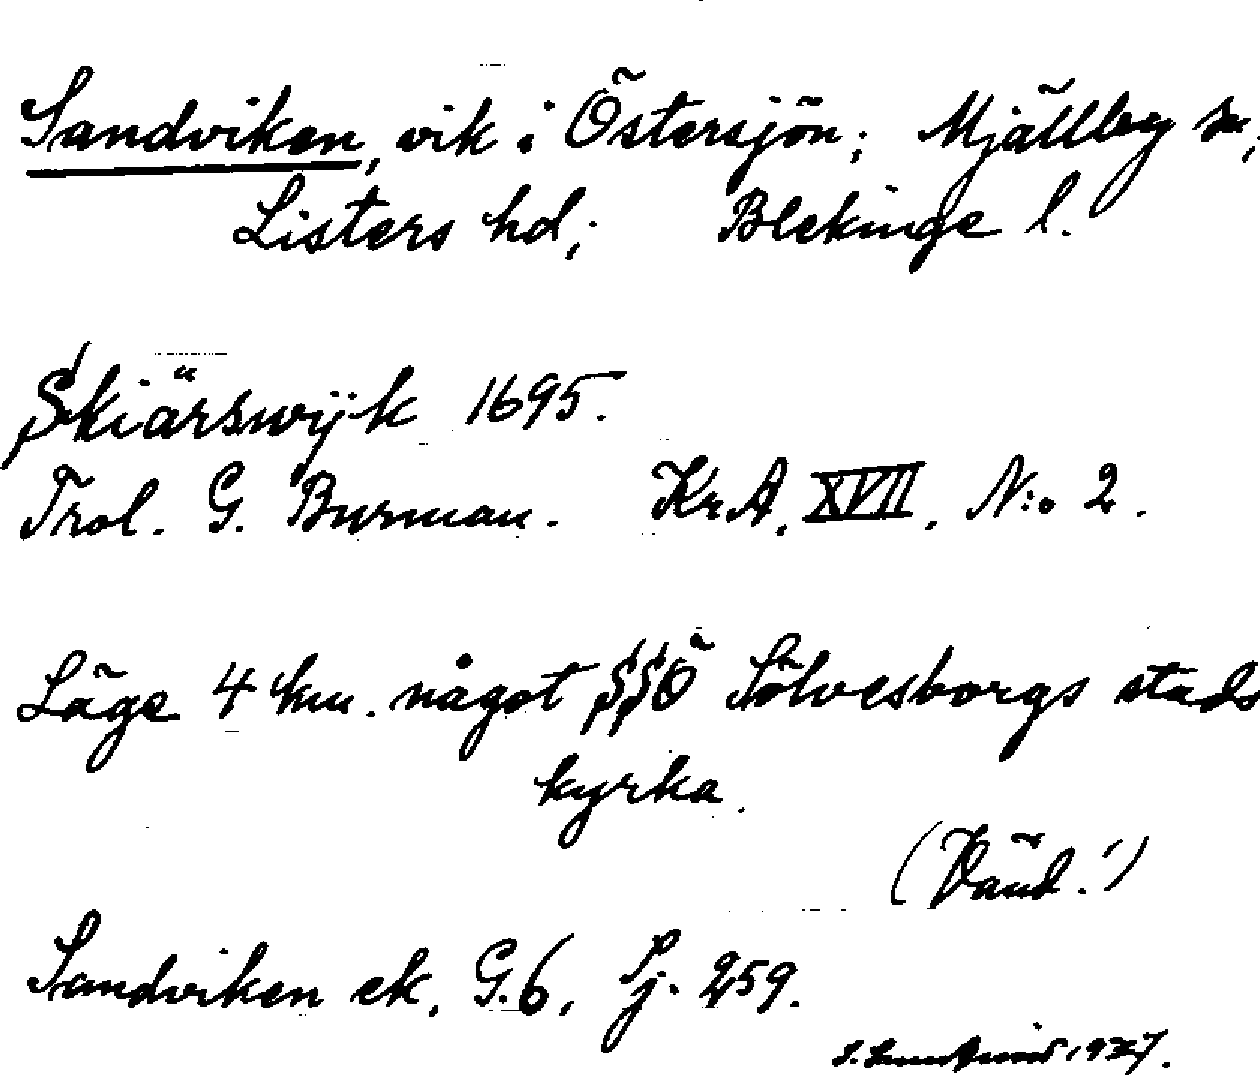 Sandviken, vik i Östersjön; Mjällby sn,
Listers hd; Blekinge l.
Skiärswijk 1695.
Trol. G. Burman. Kr.A. XVII, N:o 2.
Läge 4 km. något SSÖ Sölvesborgs stads
kyrka.
(Vänd!)
Sandviken ek, G.6, Sj. 259.
1927.